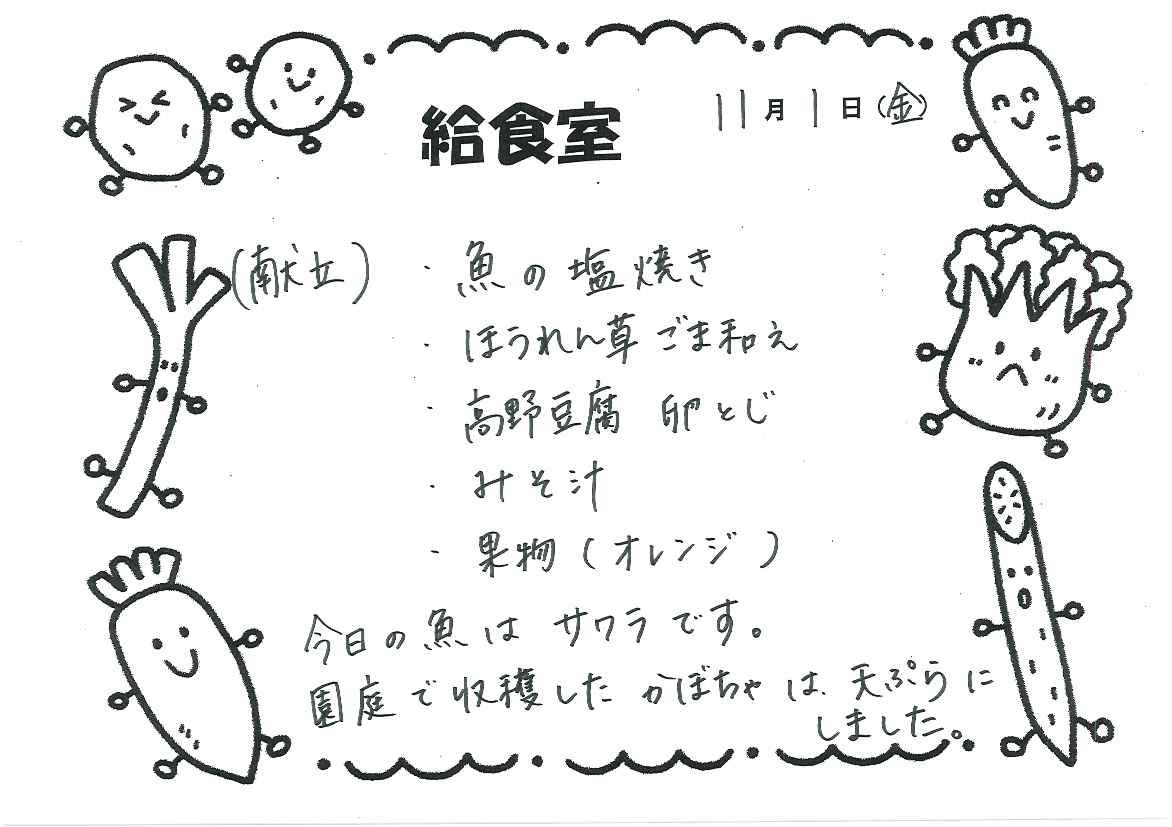 給食室 11月1日(金)
(献立) ・魚の塩焼き
・ほうれん草ごま和え
・高野豆腐 卵とじ
・みそ汁
・果物(オレンジ)
今日の魚は サワラです。
園庭で収穫した かぼちゃは、天ぷらに
しました。